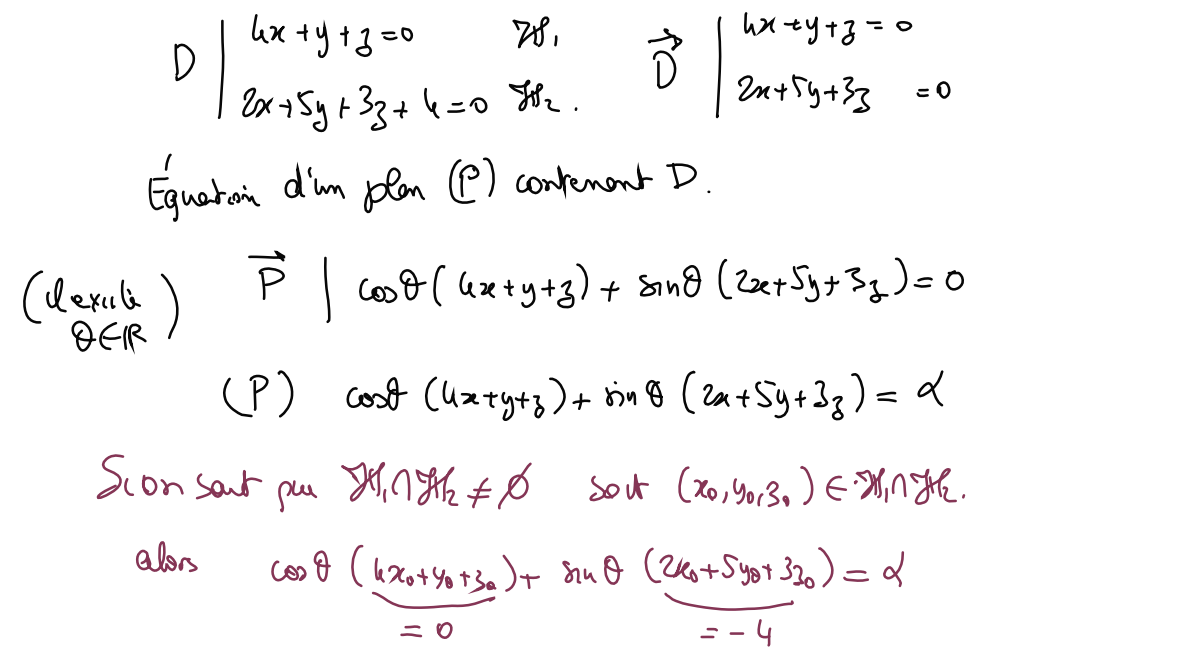 D | 4x + y + z = 0 ℋ₁ D⃗ | 4x + y + z = 0
2x + 5y + 3z + 4 = 0 ℋ₂. 2x + 5y + 3z = 0
Équation d'un plan (P) contenant D.
(il existe θ∈ℝ) P⃗ | cosθ (4x + y + z) + sinθ (2x + 5y + 3z) = 0
(P) cosθ (4x + y + z) + sinθ (2x + 5y + 3z) = α
Si on sait que ℋ₁∩ℋ₂ ≠ ∅ soit (x₀, y₀, z₀) ∈ ℋ₁∩ℋ₂.
alors cosθ (4x₀ + y₀ + z₀) + sinθ (2x₀ + 5y₀ + 3z₀) = α
= 0 = - 4